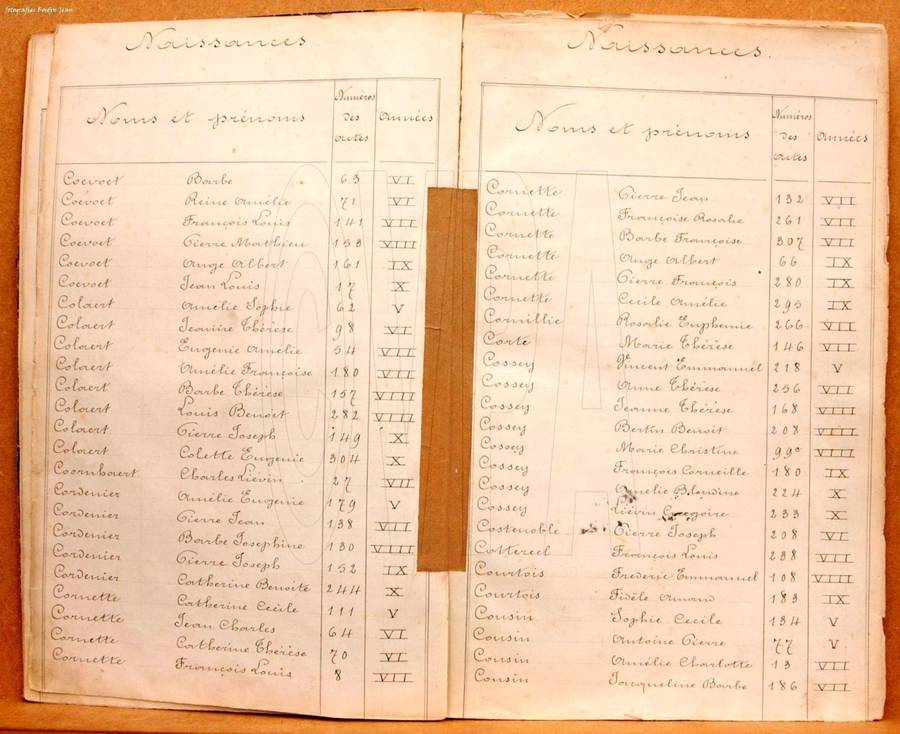 fotografies Boutjn Jean
Naissances
Noms et prénoms Numéros des actes Années
Coevoet Barbe 63 VI
Coevoet Reine Amélie 71 VI
Coevoet François Louis 141 VII
Coevoet Pierre Mathieu 153 VIII
Coevoet Ange Albert 161 IX
Coevoet Jean Louis 17 X
Colaert Amélie Sophie 62 V
Colaert Jeanne Thérèse 98 VI
Colaert Eugenie Amélie 54 VII
Colaert Amélie Françoise 180 VII
Colaert Barbe Thérèse 157 VIII
Colaert Louis Benoit 282 VIII
Colaert Pierre Joseph 149 X
Colaert Colette Eugenie 304 X
Coornhaert Charles Liévin 27 VII
Cordenier Amélie Eugenie 179 V
Cordenier Pierre Jean 138 VII
Cordenier Barbe Josephine 130 VIII
Cordenier Pierre Joseph 152 IX
Cordenier Catherine Benoite 244 X
Cornette Catherine Cecile 111 V
Cornette Jean Charles 64 VI
Cornette Catherine Thérèse 70 VI
Cornette François Louis 8 VII
Naissances.
Noms et prénoms Numéros des actes Années
Cornette Pierre Jean 132 VII
Cornette Françoise Rosalie 261 VII
Cornette Barbe Françoise 307 VII
Cornette Ange Albert 66 IX
Cornette Pierre François 280 IX
Cornette Cecile Amélie 295 IX
Cornillie Rosalie Euphemie 266 VII
Corte Marie Thérèse 146 VII
Cossey Vincent Emmanuel 218 V
Cossey Anne Thérèse 256 VII
Cossey Jeanne Thérèse 168 VIII
Cossey Bertin Benoit 208 VIII
Cossey Marie Christine 99 VIII
Cossey François Corneille 180 IX
Cossey Amelie Blandine 224 X
Cossey Liévin Gregoire 233 X
Costenoble Pierre Joseph 208 VI
Cottereel François Louis 238 VII
Courtois Frederic Emmanuel 108 VIII
Courtois Fidèle Amand 183 IX
Cousin Sophie Cecile 134 V
Cousin Antoine Pierre 77 V
Cousin Amélie Charlotte 13 VII
Cousin Jacqueline Barbe 186 VII